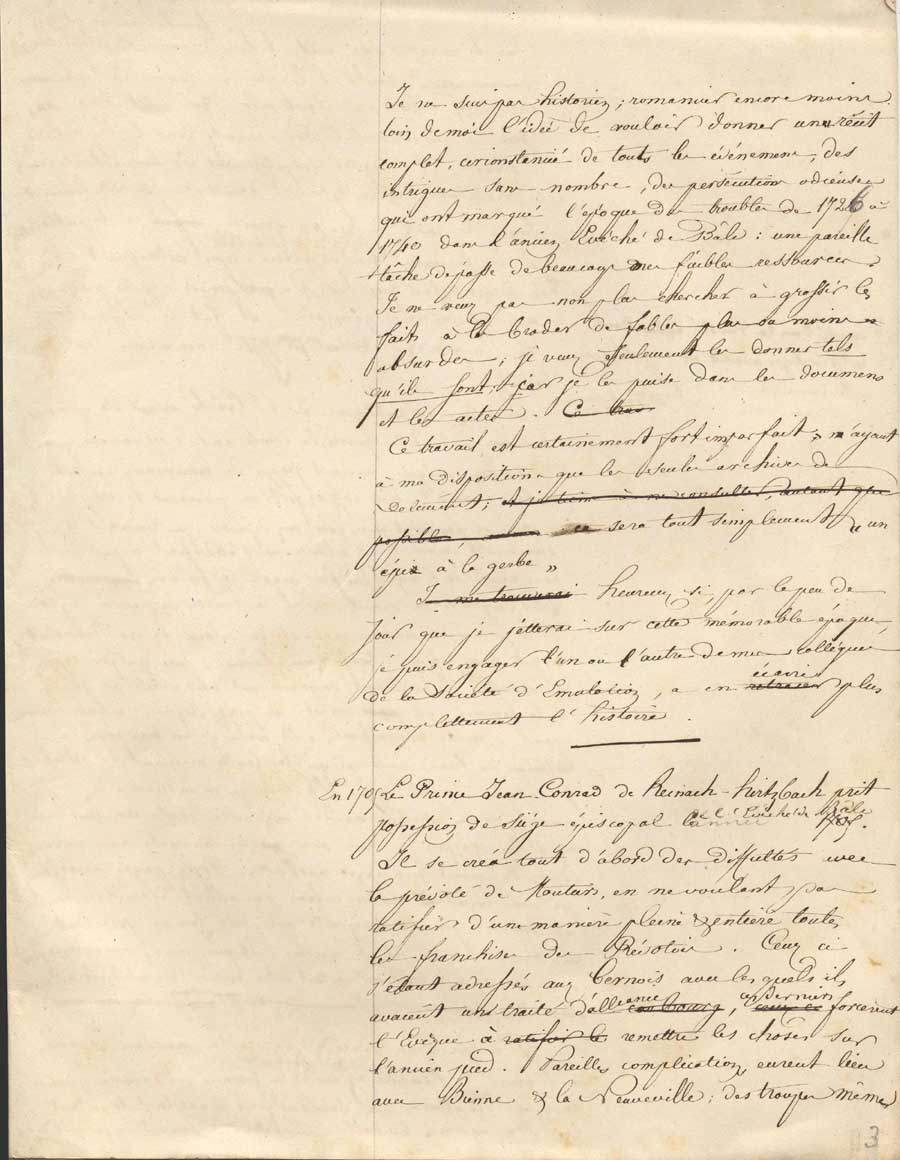 Je ne suis pas historien ; romancier encore moins
loin de moi l'idée de vouloir donner un récit
complet, cirionstancié de touts les événemens, des
intrigues sans nombre, des persécutions odieuses
qui ont marqué l'époque des troubles de 1726 à
1740 dans l'ancien Evêché de Bâle : une pareille
tâche dépasse de beaucoup mes faibles ressources.
Je ne veux pas non plus chercher à grossir les
faits à les broder de fables plus ou moins
absurdes ; je veux seulement les donner tels
qu'ils sont ; car je les puise dans les documens
et les actes. Ce trav
Ce travail est certainement fort imparfait, n'ayant
à ma disposition que les seules archives de
Delémont ; et je tiens à consulter, autant que
possible, ce sera tout simplement " un
épis à la gerbe "
Je me trouverai heureux si, par le peu de
jour que je jetterai sur cette mémorable époque,
je puis engager l'un ou l'autre de mes collègues
écrire
de la Société d'Emulation, a en retracer plus
complettement l'histoire.
En 1705 Le Prince Jean Conrad de Reinach-Hirtzbach prit
possession de Siége épiscopal l'année de l'Evêché de Bâle 1705.
Il se créa tout d'abord des diffultés avec
la prévôté de Moutier, en ne voulant pas
ratifier d'une manière pleine & entière toutes
les franchises des Prévotois. Ceux ci
s'étant adressés aux Bernois avec lesquels ils
avaient un traité d'alliance combourg, ces derniers ceux ci forcèrent
l'Evêque à ratifier les remettre les choses sur
l'ancien pied. Pareilles complications eurent lieu
avec Bienne & la Neuveville ; des troupes même
3